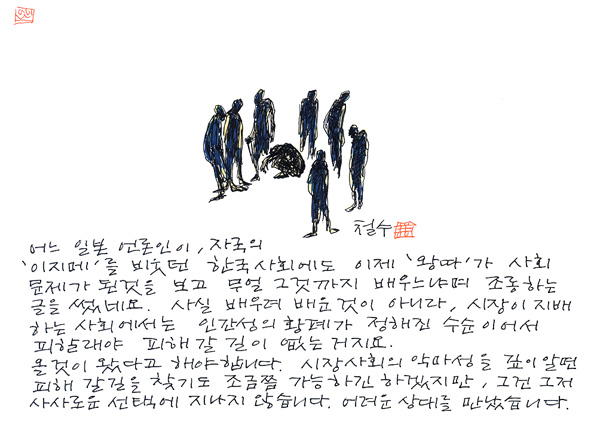 철수
어느 일본 언론인이, 자국의
'이지메'를 비웃던 한국사회에도 이제 '왕따'가 사회
문제가 된것을 보고 무얼 그것까지 배우느냐며 조롱하는
글을 썼네요. 사실 배우려 배운 것이 아니라, 시장이 지배
하는 사회에서는 인간성의 황폐가 정해진 수순이어서
피할래야 피해 갈 길이 없는 거지요.
올것이 왔다고 해야 합니다. 시장사회의 악마성을 깊이 알면
피해 갈길을 찾기도 조금쯤 가능하긴 하겠지만, 그건 그저
사사로운 선택에 지나지 않습니다. 어려운 상대를 만났습니다.